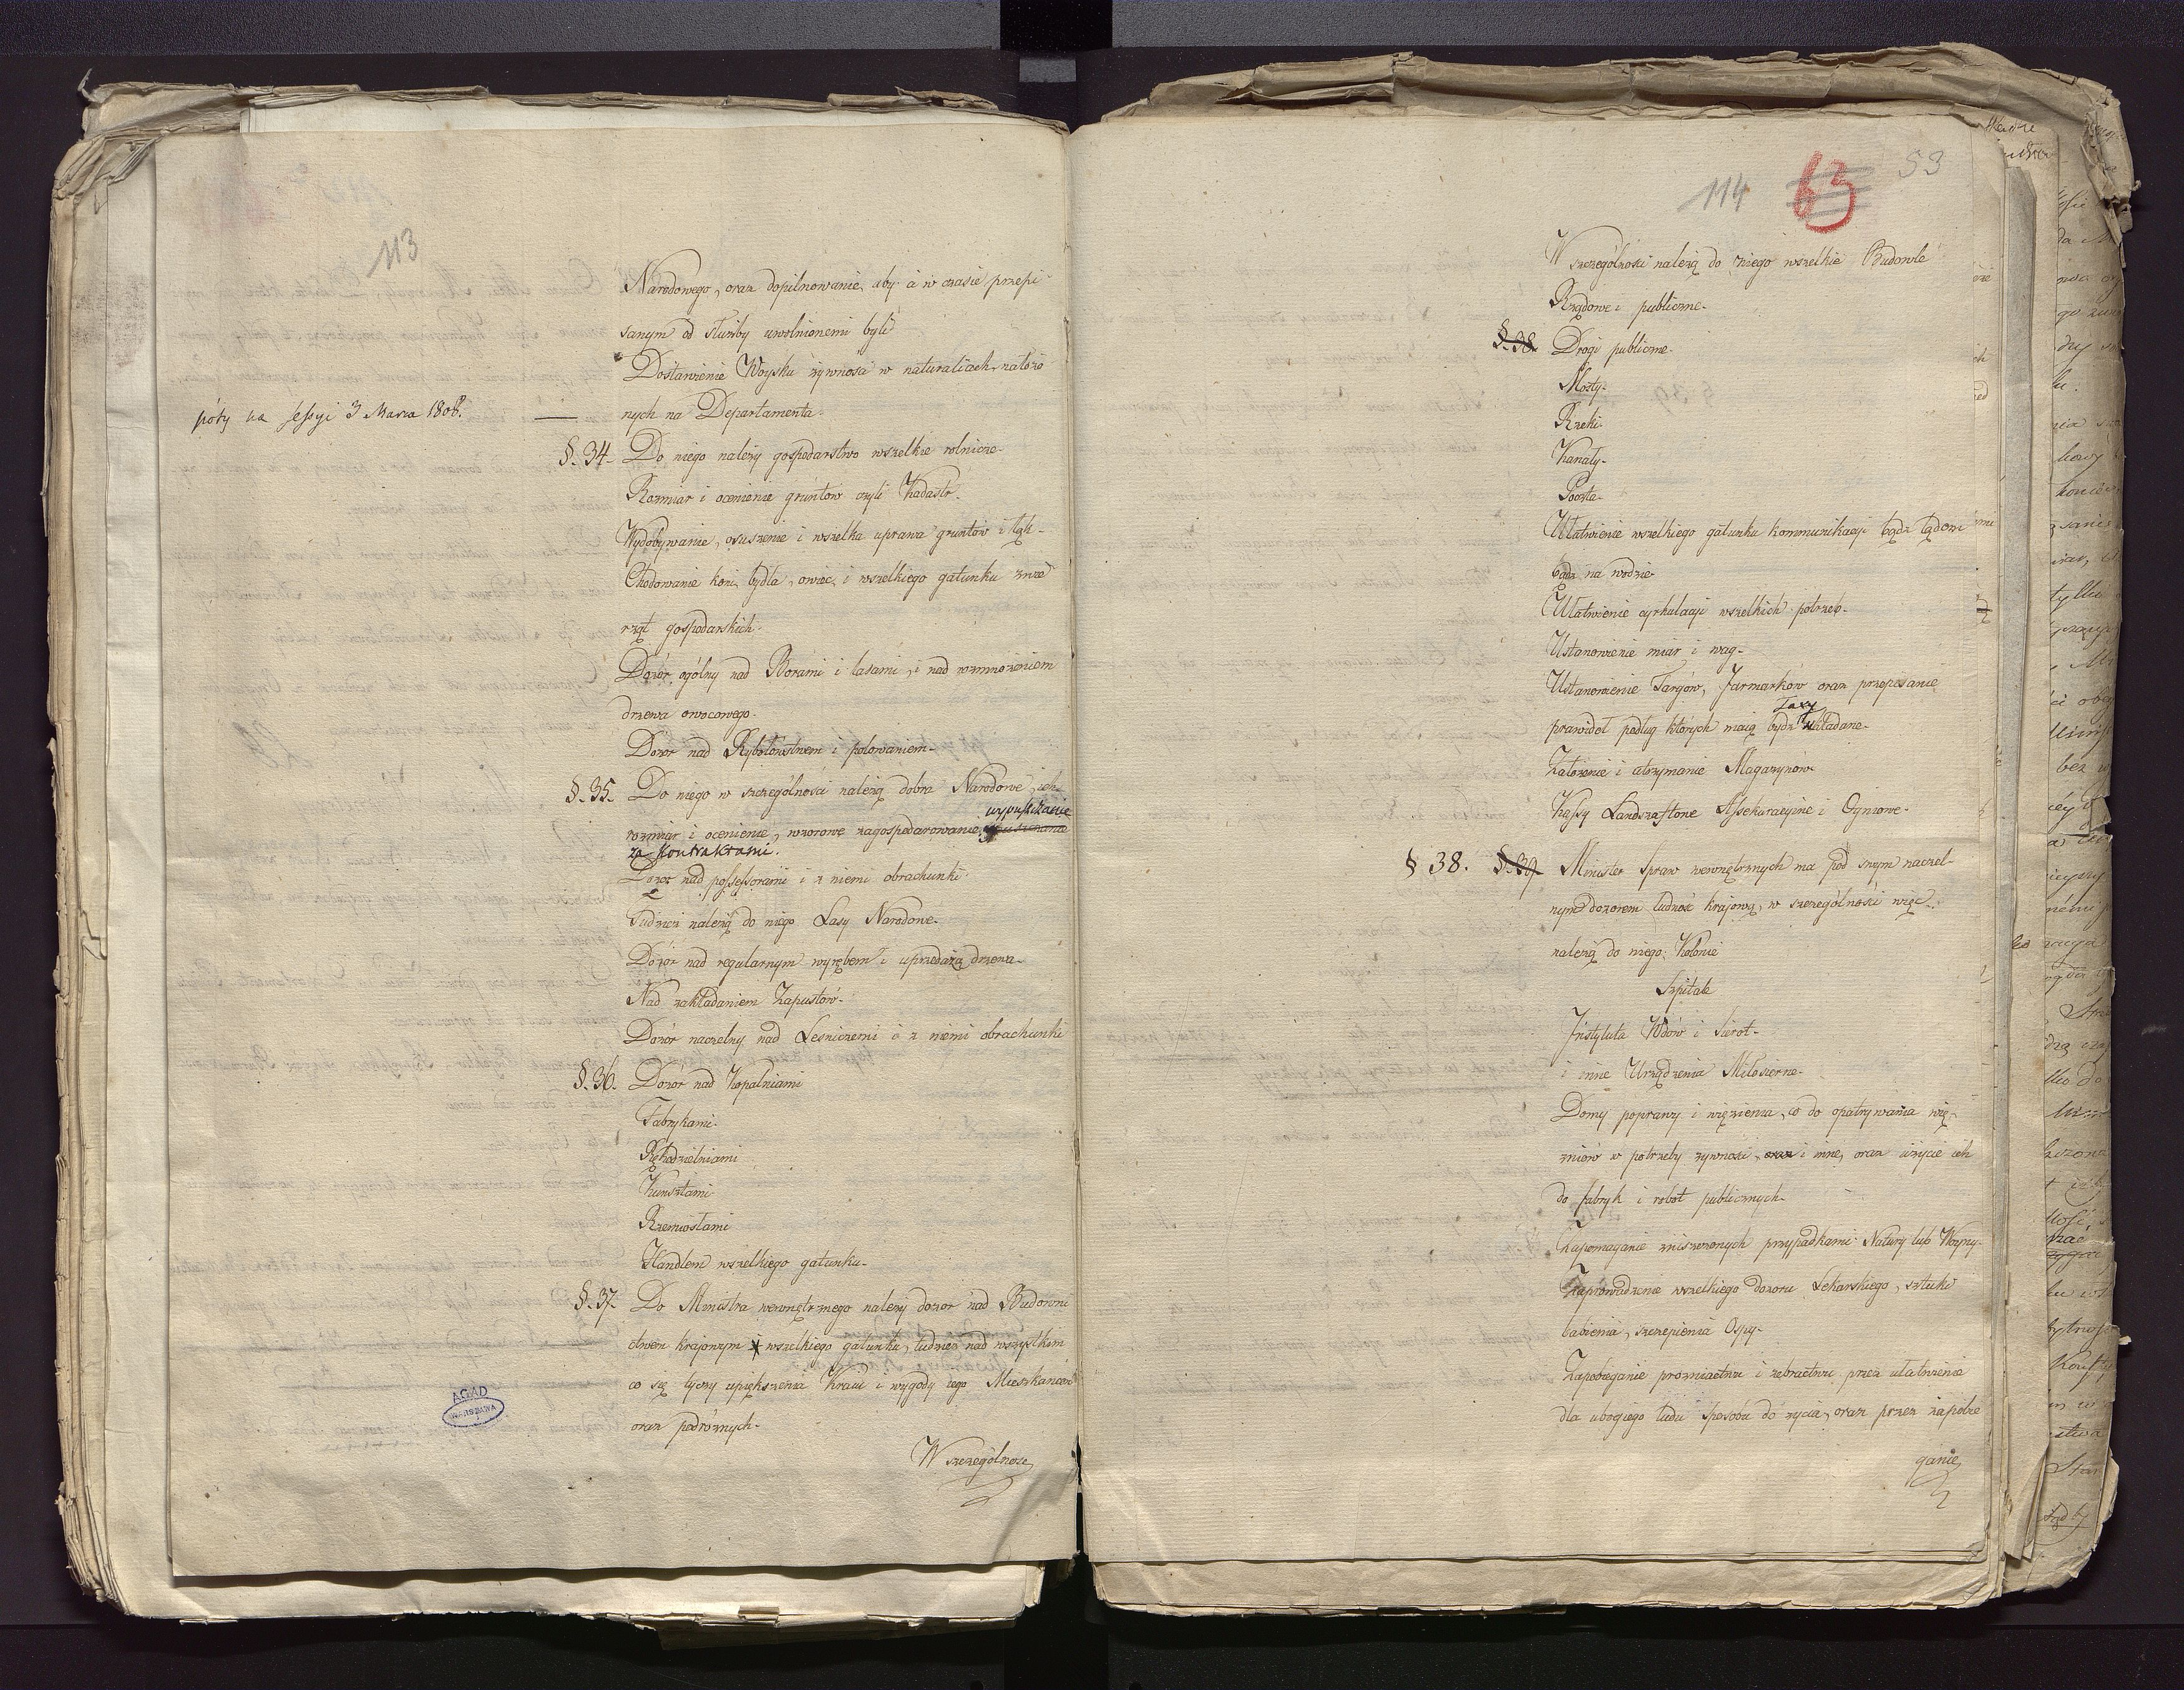 113
Narodowego, oraz dopilnowanie, aby ci w czasie przepi
sanym od służby uwolnionemi byli
Dostawienie Woysku żywności w naturaliach, nałożo
póty na sessyi 3 Marca 1808.
nych na Departamenta.
§. 34. Do niego należy gospodarstwo wszelkie rolnicze.
Rozmiar i ocenienie gruntów czyli Kadastr.
Wydobywanie, osuszenie i wszelka uprawa gruntów i łąk.
Chodowanie koni, bydła, owiec, i wszelkiego gatunku zwie
rząt gospodarskich.
Dozór ogólny nad Borami i lasami, i nad rozmnożeniem
drzewa owocowego.
Dozór nad Rybołówstwem i polowaniem.
§. 35. Do niego w szczególności należą dobra Narodowe, ich
wypuszczanie
rozmiar i ocenienie, wzorowe zagospodarowanie,
za Kontraktami.
Dozór nad possessorami i z niemi obrachunki.
Tudzież należą do niego Lasy Narodowe.
Dozór nad regularnym wyrębem i uprzedażą drzewa.
Nad zakładaniem Zapustów.
Dozór naczelny nad Leśniczemi i z niemi obrachunki
§. 36. Dozór nad Kopalniami
Fabrykami.
Rękodzielniami
Kunsztami
Rzemiosłami
Handlem wszelkiego gatunku.
§. 37. Do Ministra wewnętrznego należy dozór nad Budowni
ctwem krajowym i wszelkiego gatunku, tudzież nad wszystkim
co się tyczy upiększenia Kraiu i wygody iego Mieszkańców
oraz podróżnych.
W szczególnosc
AGAD
WARSZAWA
114 63 53
W szczególności należą do niego wszelkie Budowle
Rządowe i publiczne.
§. 38. Drogi publiczne.
Mosty.
Rzeki.
Kanały.
Poczta.
Ułatwienie wszelkiego gatunku kommunikacyi bądz lądem
bądz na wodzie
Ułatwienie cyrkulacyi wszelkich potrzeb.
Ustanowienie miar i wag.
Ustanowienie Targów, Jarmarków oraz przepisanie
Taxy
prawideł podług których maią bydz nakładane.
Założenie i utrzymanie Magazynów
Kassy Landszaftowe Assekuracyine i Ogniowe.
§ 38. §. 39. Minister Spraw wewnętrznych ma pod swym naczel-
nym dozorem ludność krajową, w szczególności więc
należą do niego: Kolonie
Szpitale
Instytuta Wdów i Sierot.
i inne Urządzenia Miłosierne.
Domy poprawy i więzienia, co do opatrywania wię-
zniów w potrzeby żywności, oraz i inne, oraz użycie ich
do fabryk i robot publicznych.
Zapomaganie zniszczonych przypadkami Natury lub Woyny.
Zaprowadzenie wszelkiego dozoru Lekarskiego, sztuki
babienia, szczepienia Ospy.
Zapobieganie prozniactwu i zebractwu przez ułatwienie
dla ubogiego ludu sposobu do życia, oraz przez zapobie
ganie